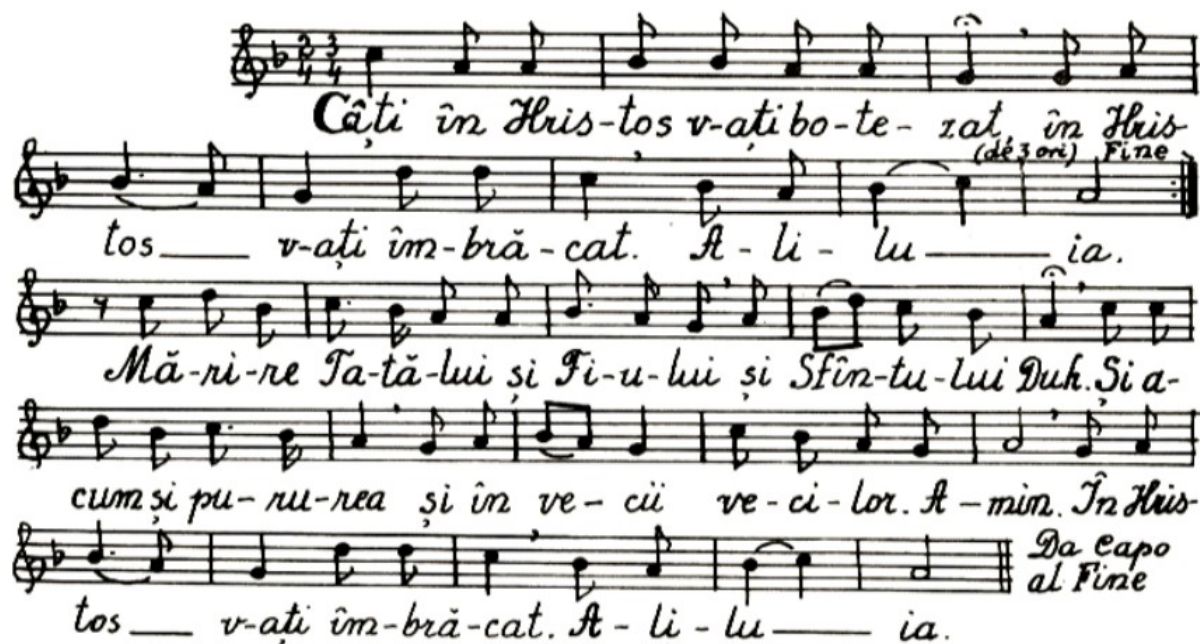 2 3
4 4
Câți în Hris-tos v-ați bo-te-zat, în Hris-
(de 3 ori) Fine
tos___ v-ați îm-bră-cat. A-li-lu___ia.
Mă-ri-re Ta-tă-lui și Fi-u-lui și Sfîn-tu-lui Duh. Și a-
cum și pu-ru-rea și în ve-cii ve-ci-lor. A-min. În Hris-
Da Capo
al Fine
tos___ v-ați îm-bră-cat. A-li-lu___ia.